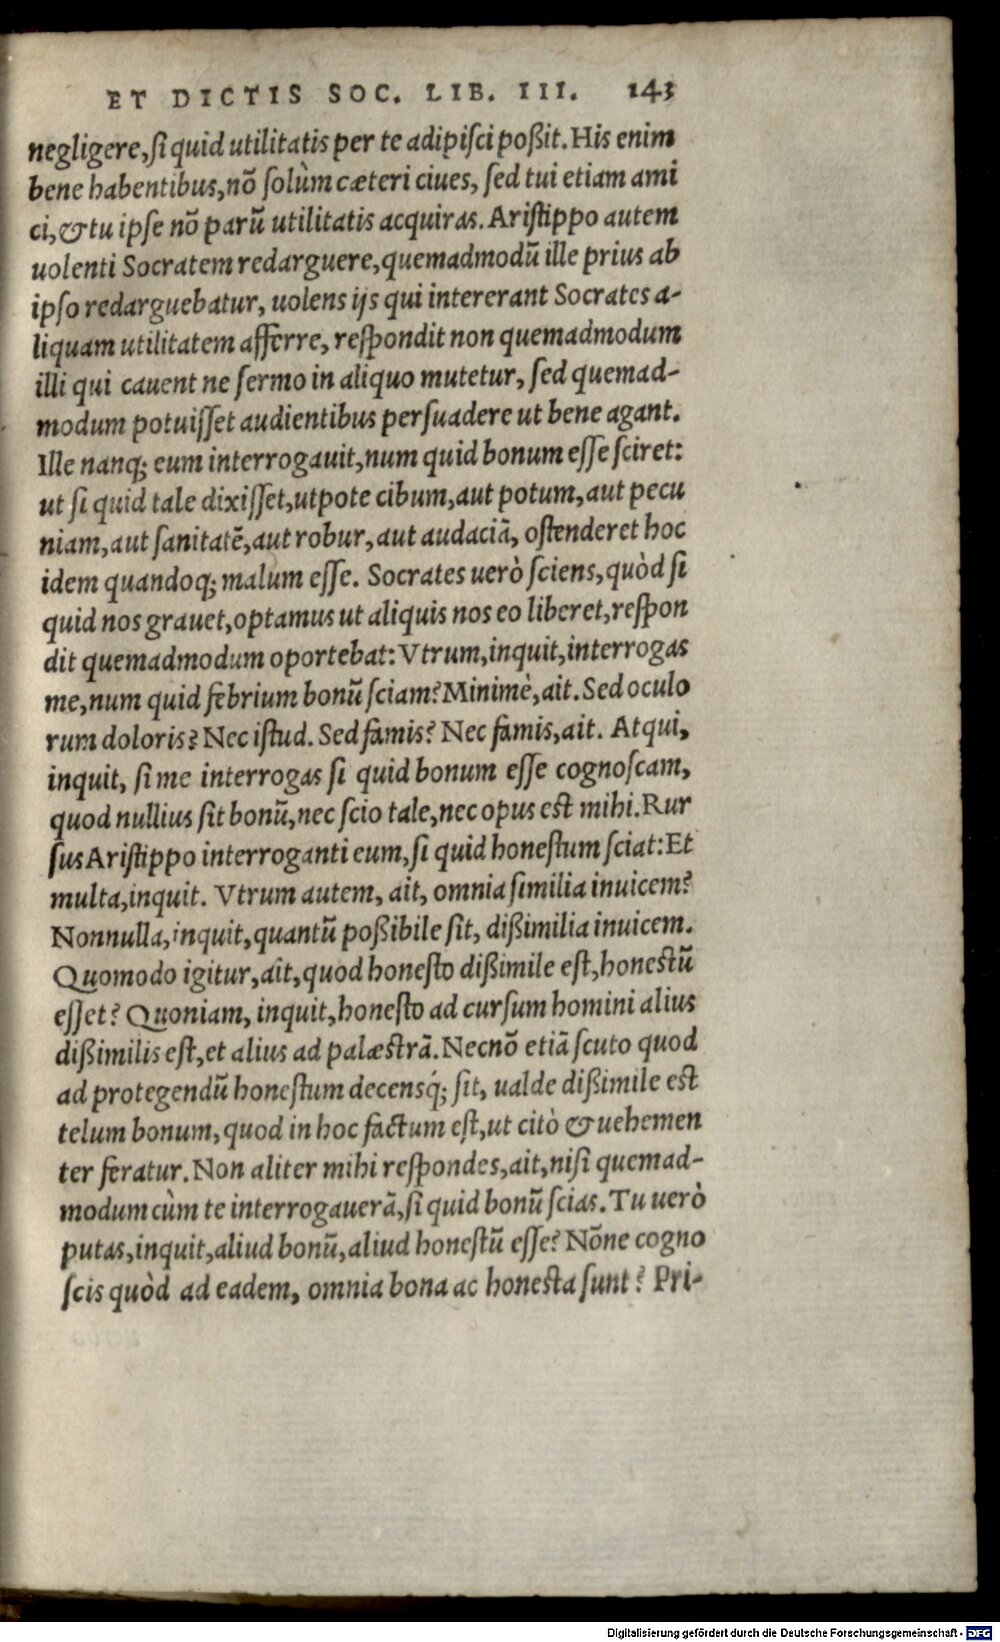 ET DICTIS SOC. LIB. III. 143
negligere,ſi quid utilitatis per te adipiſci poßit. His enim
bene habentibus,nõ ſolùm cæteri ciues, ſed tui etiam ami
ci,& tu ipſe nõ parũ utilitatis acquiras. Ariſtippo autem
uolenti Socratem redarguere,quemadmodũ ille prius ab
ipſo redarguebatur, uolens ijs qui intererant Socrates a-
liquam utilitatem afferre, reſpondit non quemadmodum
illi qui cauent ne ſermo in aliquo mutetur, ſed quemad-
modum potuiſſet audientibus perſuadere ut bene agant.
Ille nanq; eum interrogauit,num quid bonum eſſe ſciret:
ut ſi quid tale dixiſſet,utpote cibum,aut potum,aut pecu
niam,aut ſanitatẽ,aut robur,aut audaciã, oſtenderet hoc
idem quandoq; malum eſſe. Socrates uerò ſciens,quòd ſi
quid nos grauet,optamus ut aliquis nos eo liberet,reſpon
dit quemadmodum oportebat: Vtrum,inquit,interrogas
me,num quid febrium bonũ ſciam? Minimè,ait. Sed oculo
rum doloris? Nec iſtud. Sed famis? Nec famis,ait. Atqui,
inquit, ſi me interrogas ſi quid bonum eſſe cognoſcam,
quod nullius ſit bonũ,nec ſcio tale,nec opus est mihi. Rur
ſus Ariſtippo interroganti eum,ſi quid honeſtum ſciat: Et
multa,inquit. Vtrum autem, ait, omnia ſimilia inuicem?
Nonnulla,inquit,quantũ poßibile ſit, dißimilia inuicem.
Quomodo igitur,ait,quod honeſto dißimile eſt,honeſtũ
eſſet? Quoniam, inquit,honeſto ad curſum homini alius
dißimilis eſt,et alius ad palæſtrã. Necnõ etiã ſcuto quod
ad protegendũ honeſtum decensq́; ſit, ualde dißimile est
telum bonum,quod in hoc factum eſt,ut citò & uehemen
ter feratur. Non aliter mihi reſpondes,ait,niſi quemad-
modum cùm te interrogauerã,ſi quid bonũ ſcias. Tu uerò
putas,inquit,aliud bonũ,aliud honeſtũ eſſe? Nõne cogno
ſcis quòd ad eadem, omnia bona ac honeſta ſunt? Pri-
Digitalisierung gefördert durch die Deutsche Forschungsgemeinschaft - DFG